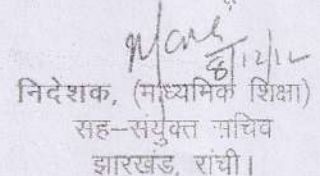 8/12/12
निदेशक, (माध्यमिक शिक्षा)
सह-संयुक्त सचिव
झारखंड, रांची।